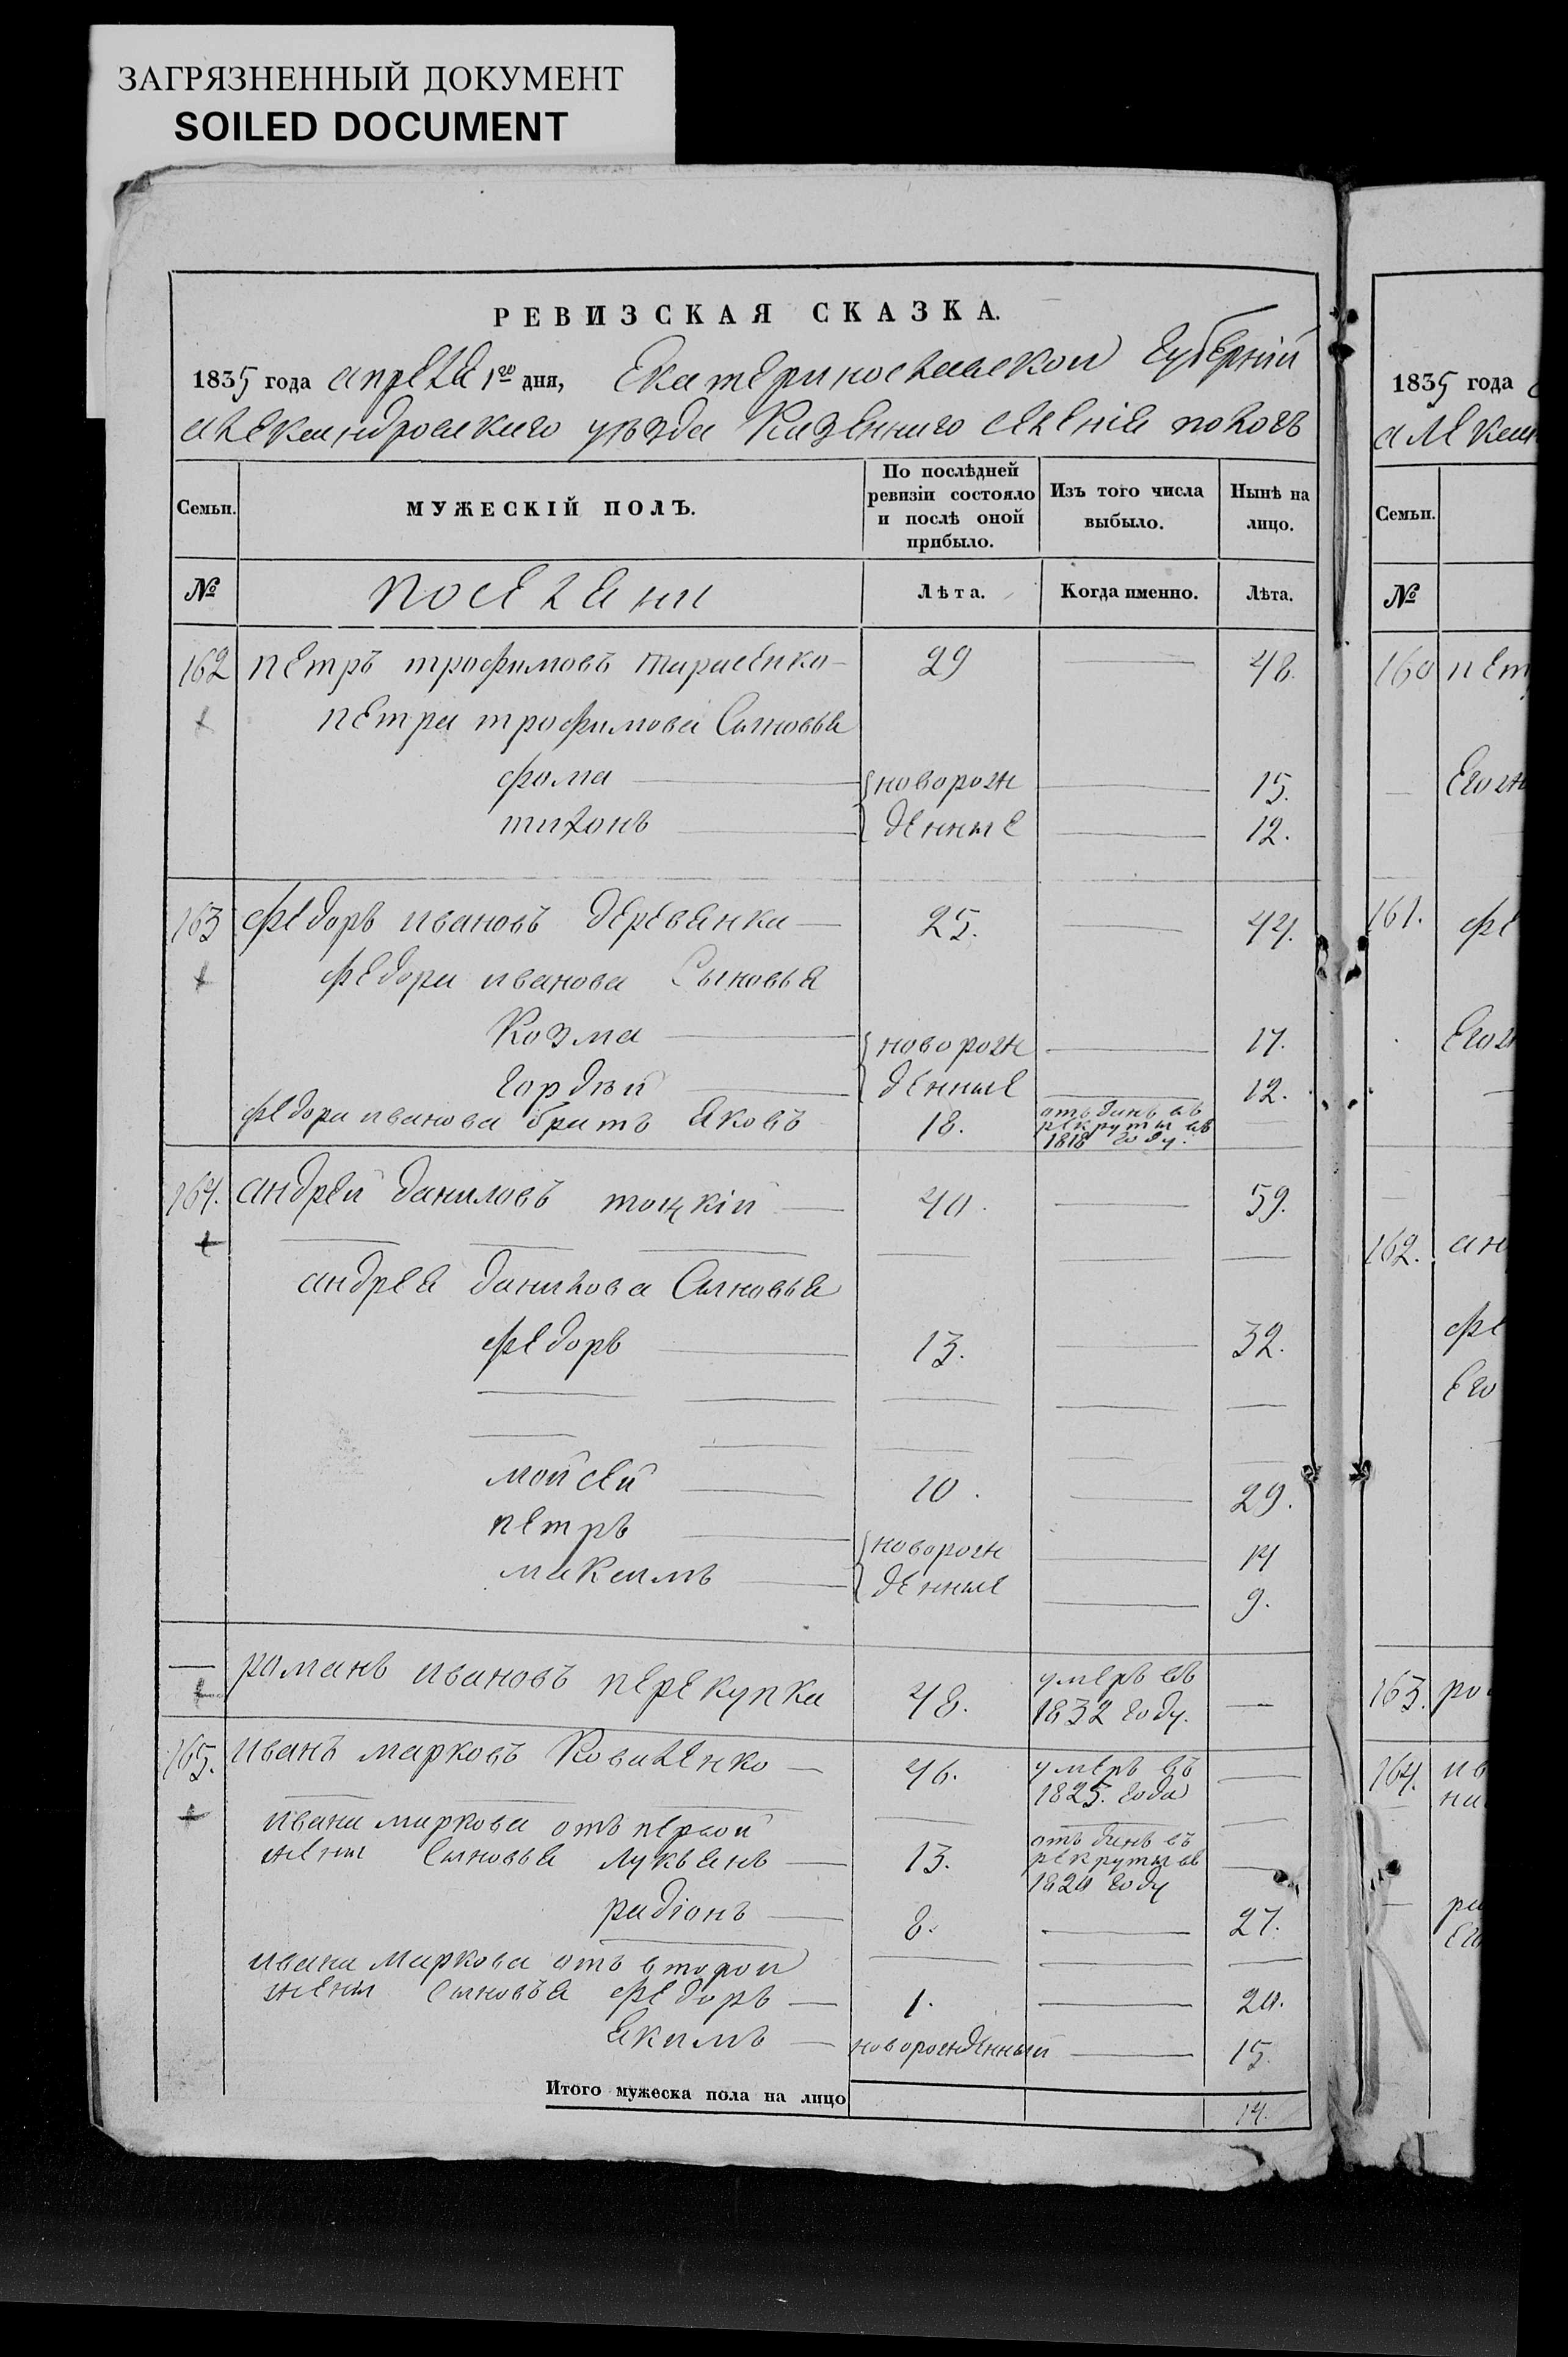 ЗАГРЯЗНЕННЫЙ ДОКУМЕНТ
SOILED DOCUMENT
РЕВИЗСКАЯ СКАЗКА.
1835 года апреля 1го дня, Екатеринославской Губернiи
александровскаго уѣзда Казеннаго селенiя пологъ
Семьи. МУЖЕСКІЙ ПОЛЪ. По послѣдней ревизіи состояло и послѣ оной прибыло. Изъ того числа выбыло. Нынѣ на лицо.
№ поселяни Лѣта. Когда именно. Лѣта.
162 петръ трофимовъ тарасенко 29 — 48.
петра трофимова Сыновья
фома новорож — 15.
тихонъ денные — 12.
163 федоръ ивановъ деревянка 25. — 44.
федора иванова Сыновья
Козма новорож — 17.
гордѣй денные — 12.
федора иванова братъ яковъ 18. отъданъ въ рекруты въ 1818 году. —
164. андрей даниловъ тоцкій 40. — 59.
андрея данилова Сыновья
федоръ 13. — 32.
мойсей 10. — 29.
петръ новорож — 14
максимъ денные — 9.
— романъ ивановъ перекупка 48. умеръ въ 1832 году. —
165. иванъ марковъ Коваленко 46. умеръ въ 1825. года —
ивана маркова отъ первой
жены сыновья лукьянъ 13. отъданъ въ рекруты въ 1820 году —
радіонъ 8. — 27.
ивана маркова отъ второй
жены сыновья федоръ 1. — 20.
якимъ новорожденный — 15.
Итого мужеска пола на лицо 14.
1835 года
алексан
Семьи.
№
160 пет
Егож
161. фе
Егож
162. ан
фе
Его
163. ро
164. ив
на
ра
Его